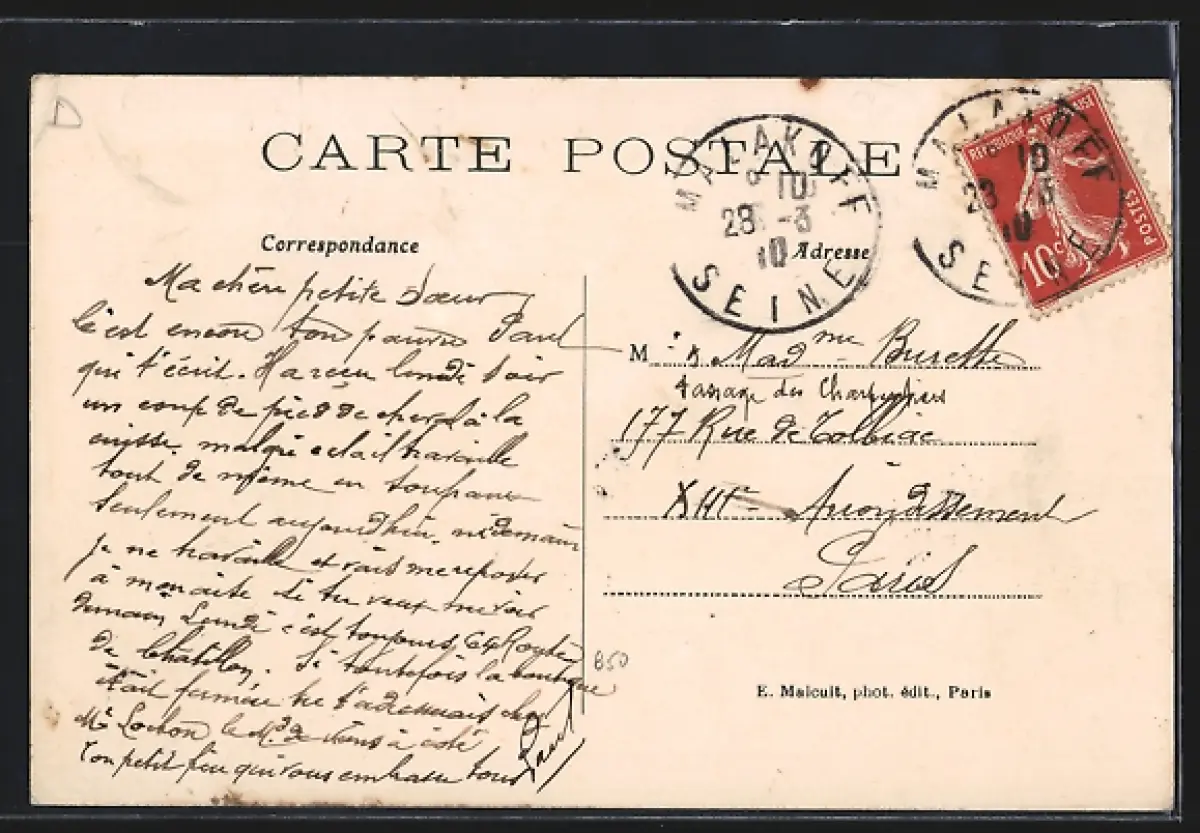 D
CARTE POSTALE
MALAKOFF
10
28 -3
10
SEINE
MALAKOFF
10
28 -3
10
SEINE
REPUBLIQUE FRANÇAISE
POSTES
10c
Correspondance
Adresse
Ma chère petite Sœur
C'est encore ton pauvre Paul
qui t'écrit. Ha reçu lundi soir
un coup de pied de cheval à la
cuisse malgré cela il travaille
tout de même en
seulement aujourd'hui, ni demain
je ne travaille et vais me reposer
à Si tu veux me voir
demain Lundi c'est toujours 64 Route
de Châtillon. Si toutefois la boutique
était fermée tu t'adresserais chez
Mr le Md de Vins à côté
Ton petit qui vous embrasse tous
Paul
M Madme Burette
Passage des Charpentiers
177 Rue de Tolbiac
XIIIe Arrondissement
Paris
850
E. Malcuit, phot. édit., Paris